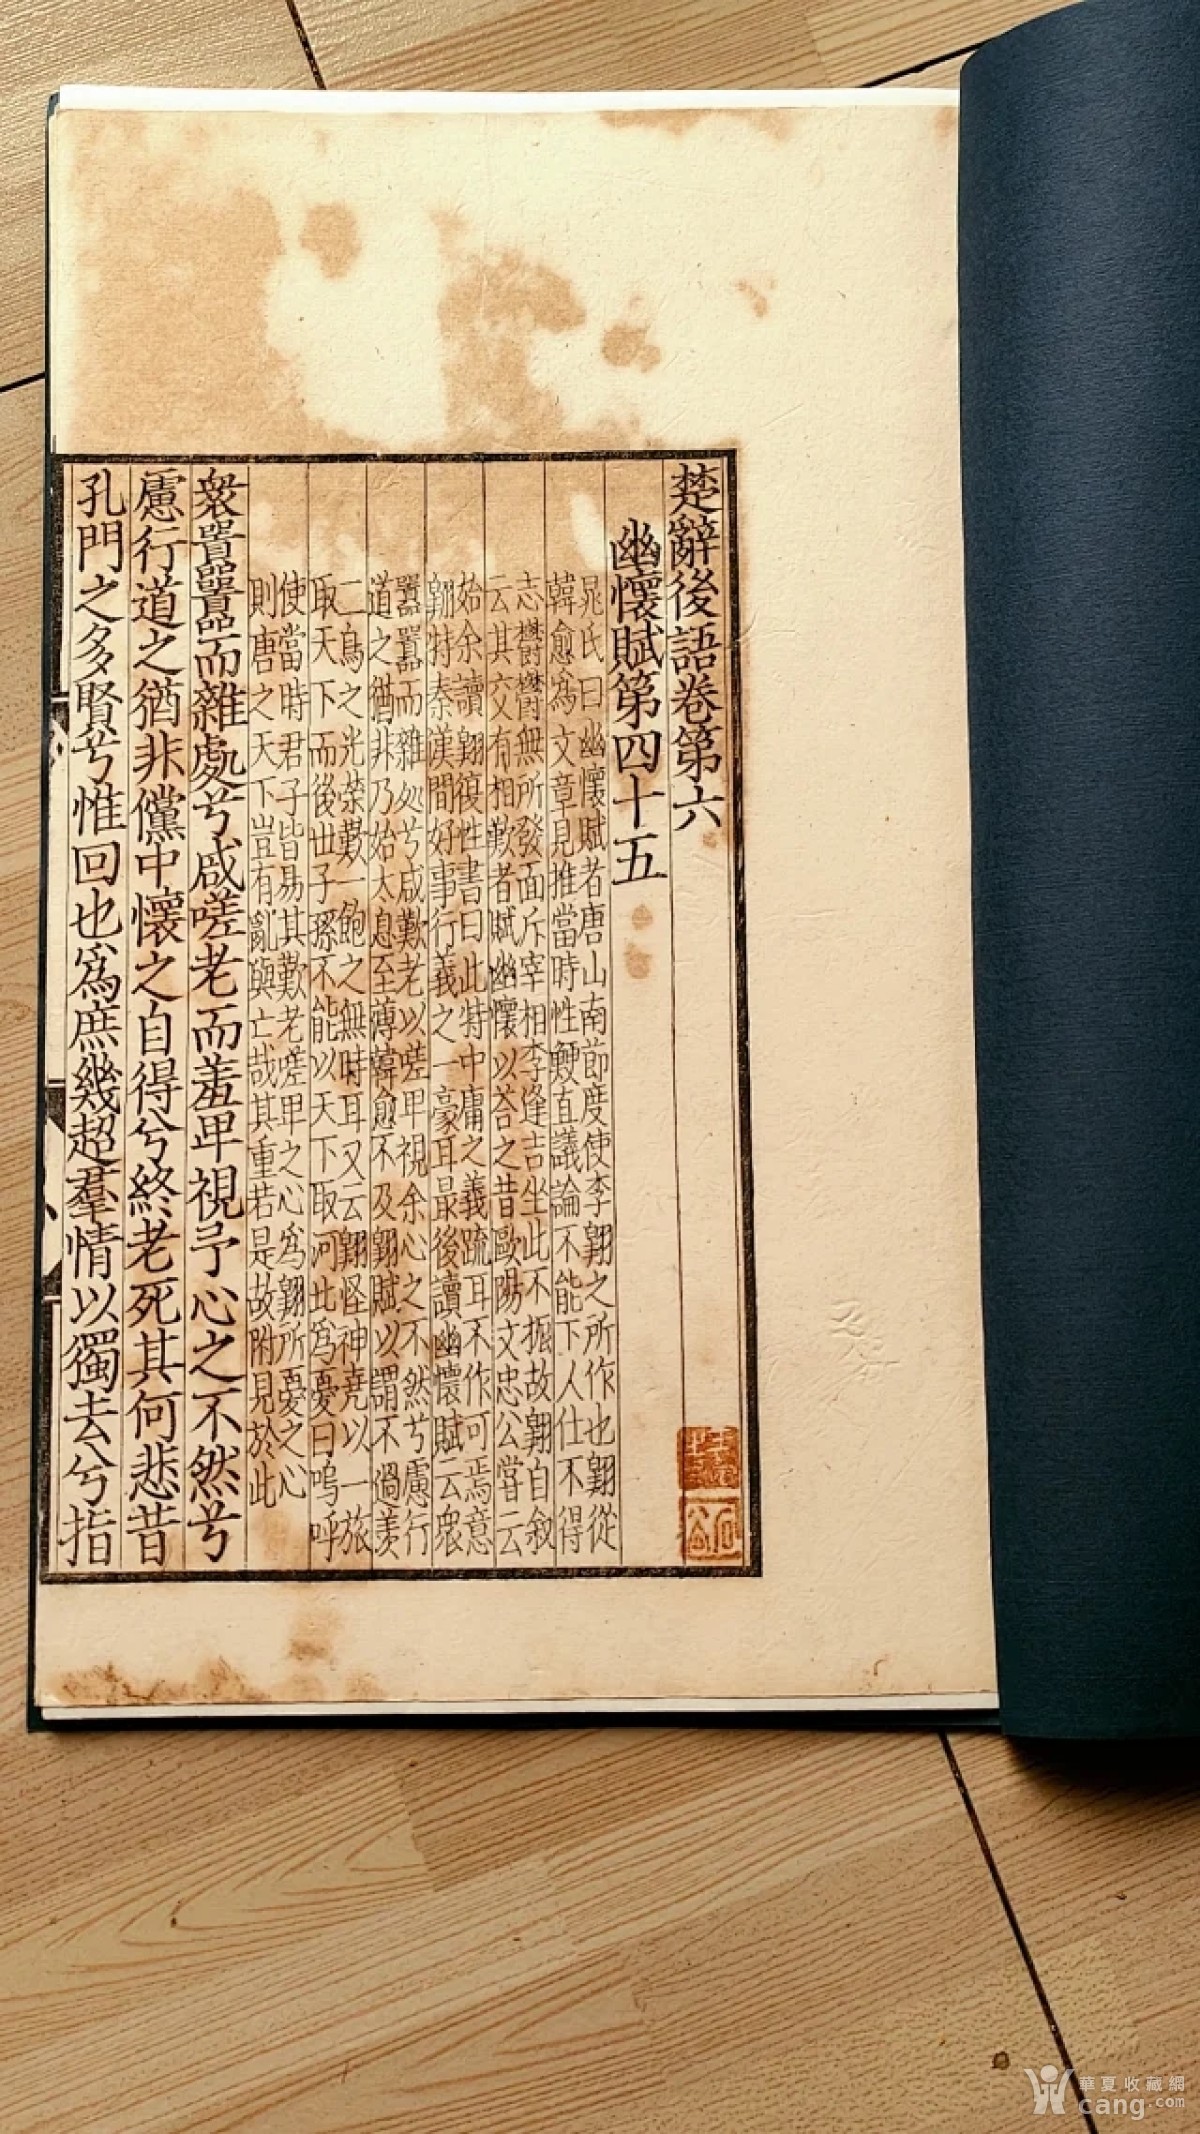 楚辭後語卷第六
幽懷賦第四十五
晁氏曰幽懷賦者唐山南節度使李翺之所作也翺從
韓愈爲文章見推當時性鯁直議論不能下人仕不得
志鬱鬱無所發面斥宰相李逢吉坐此不振故翺自敘
云其交有相歎者賦幽懷以荅之昔歐陽文忠公嘗云
始余讀翺復性書曰此特中庸之義疏耳不作可焉意
翺特秦漢間好事行義之一豪耳最後讀幽懷賦云衆
囂囂而雜処兮咸歎老以嗟卑視余心之不然兮慮行
道之猶非乃始太息至薄韓愈不及翺賦以謂不過羨
二鳥之光榮歎一飽之無時耳又云翺怪神堯以一旅
取天下而後世子孫不能以天下取河北爲憂曰嗚呼
使當時君子皆易其歎老嗟卑之心爲翺所憂之心
則唐之天下豈有亂與亡哉其重若是故附見於此
衆囂囂而雜處兮咸嗟老而羞卑視予心之不然兮
慮行道之猶非儻中懷之自得兮終老死其何悲昔
孔門之多賢兮惟回也爲庶幾超羣情以獨去兮指
華夏收藏網
cang.com